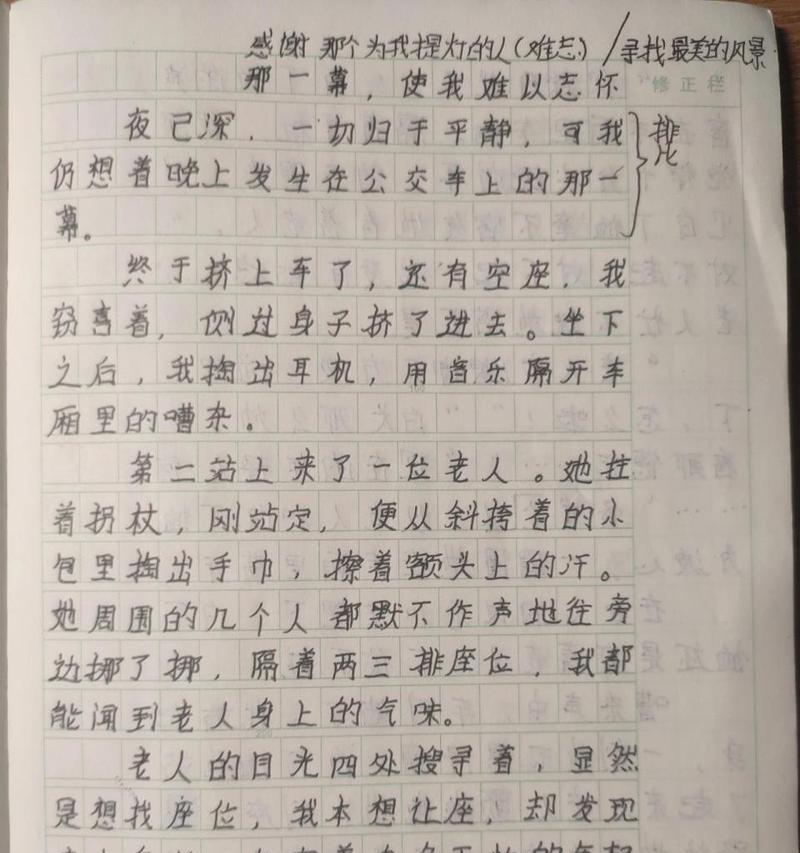 感谢那个为我提灯的人(难忘)/寻找最美的风景
那一幕，使我难以忘怀
修正栏
夜已深，一切归于平静，可我
排比
仍想着晚上发生在公交车上的那一
幕。
终于挤上车了，还有空座，我
窃喜着，侧过身子挤了进去。坐下
之后，我掏出耳机，用音乐隔开车
厢里的嘈杂。
第二站上来了一位老人。她拄
着拐杖，刚站定，便从斜挎着的小
包里掏出手巾，擦着额头上的汗。
她周围的几个人都默不作声地往旁
边挪了挪，隔着两三排座位，我都
能闻到老人身上的气味。
老人的目光四处搜寻着，显然
是想找座位，我本想让座，却发现